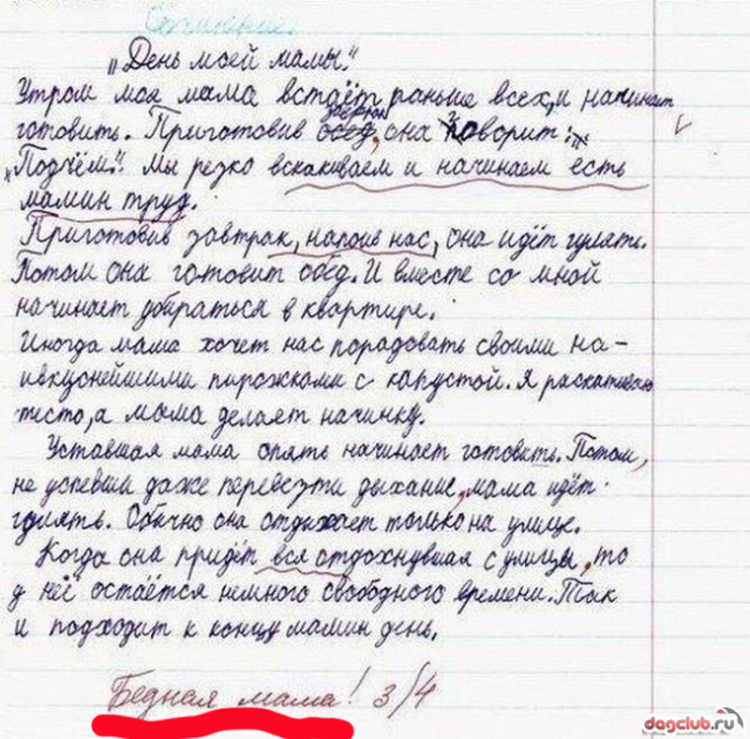 Сочинение.
„День моей мамы."
Утром моя мама встаёт раньше всех, и начинает
завтрак
готовить. Приготовив обед, она говорит:
„Подъём." Мы резко вскакиваем и начинаем есть
мамин труд.
Приготовив завтрак, напоив нас, она идёт гулять.
Потом она готовит обед. И вместе со мной
начинает убираться в квартире.
Иногда маша хочет нас порадовать своими на-
ивкуснейшими пирожками с капустой. Я раскатываю
тесто, а мама делает начинку.
Уставшая мама опять начинает готовить. Потом,
не успевши даже перевезти дыхание, мама идёт
гулять. Обычно она отдыхает только на улице.
Когда она придёт вся отдохнувшая с улицы, то
у неё остаётся немного свободного времени. Так
и подходит к концу мамин день.
Бедная мама! 3/4
dagclub.ru